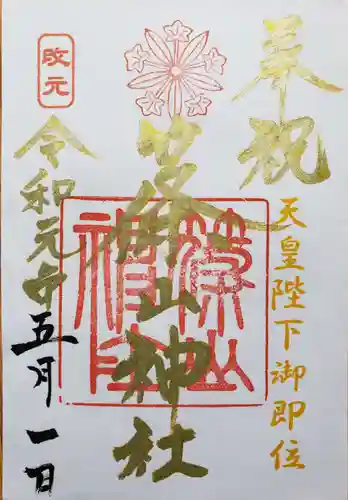 奉祝
天皇陛下御即位
篠山神社
改元
令和元年
五月一日